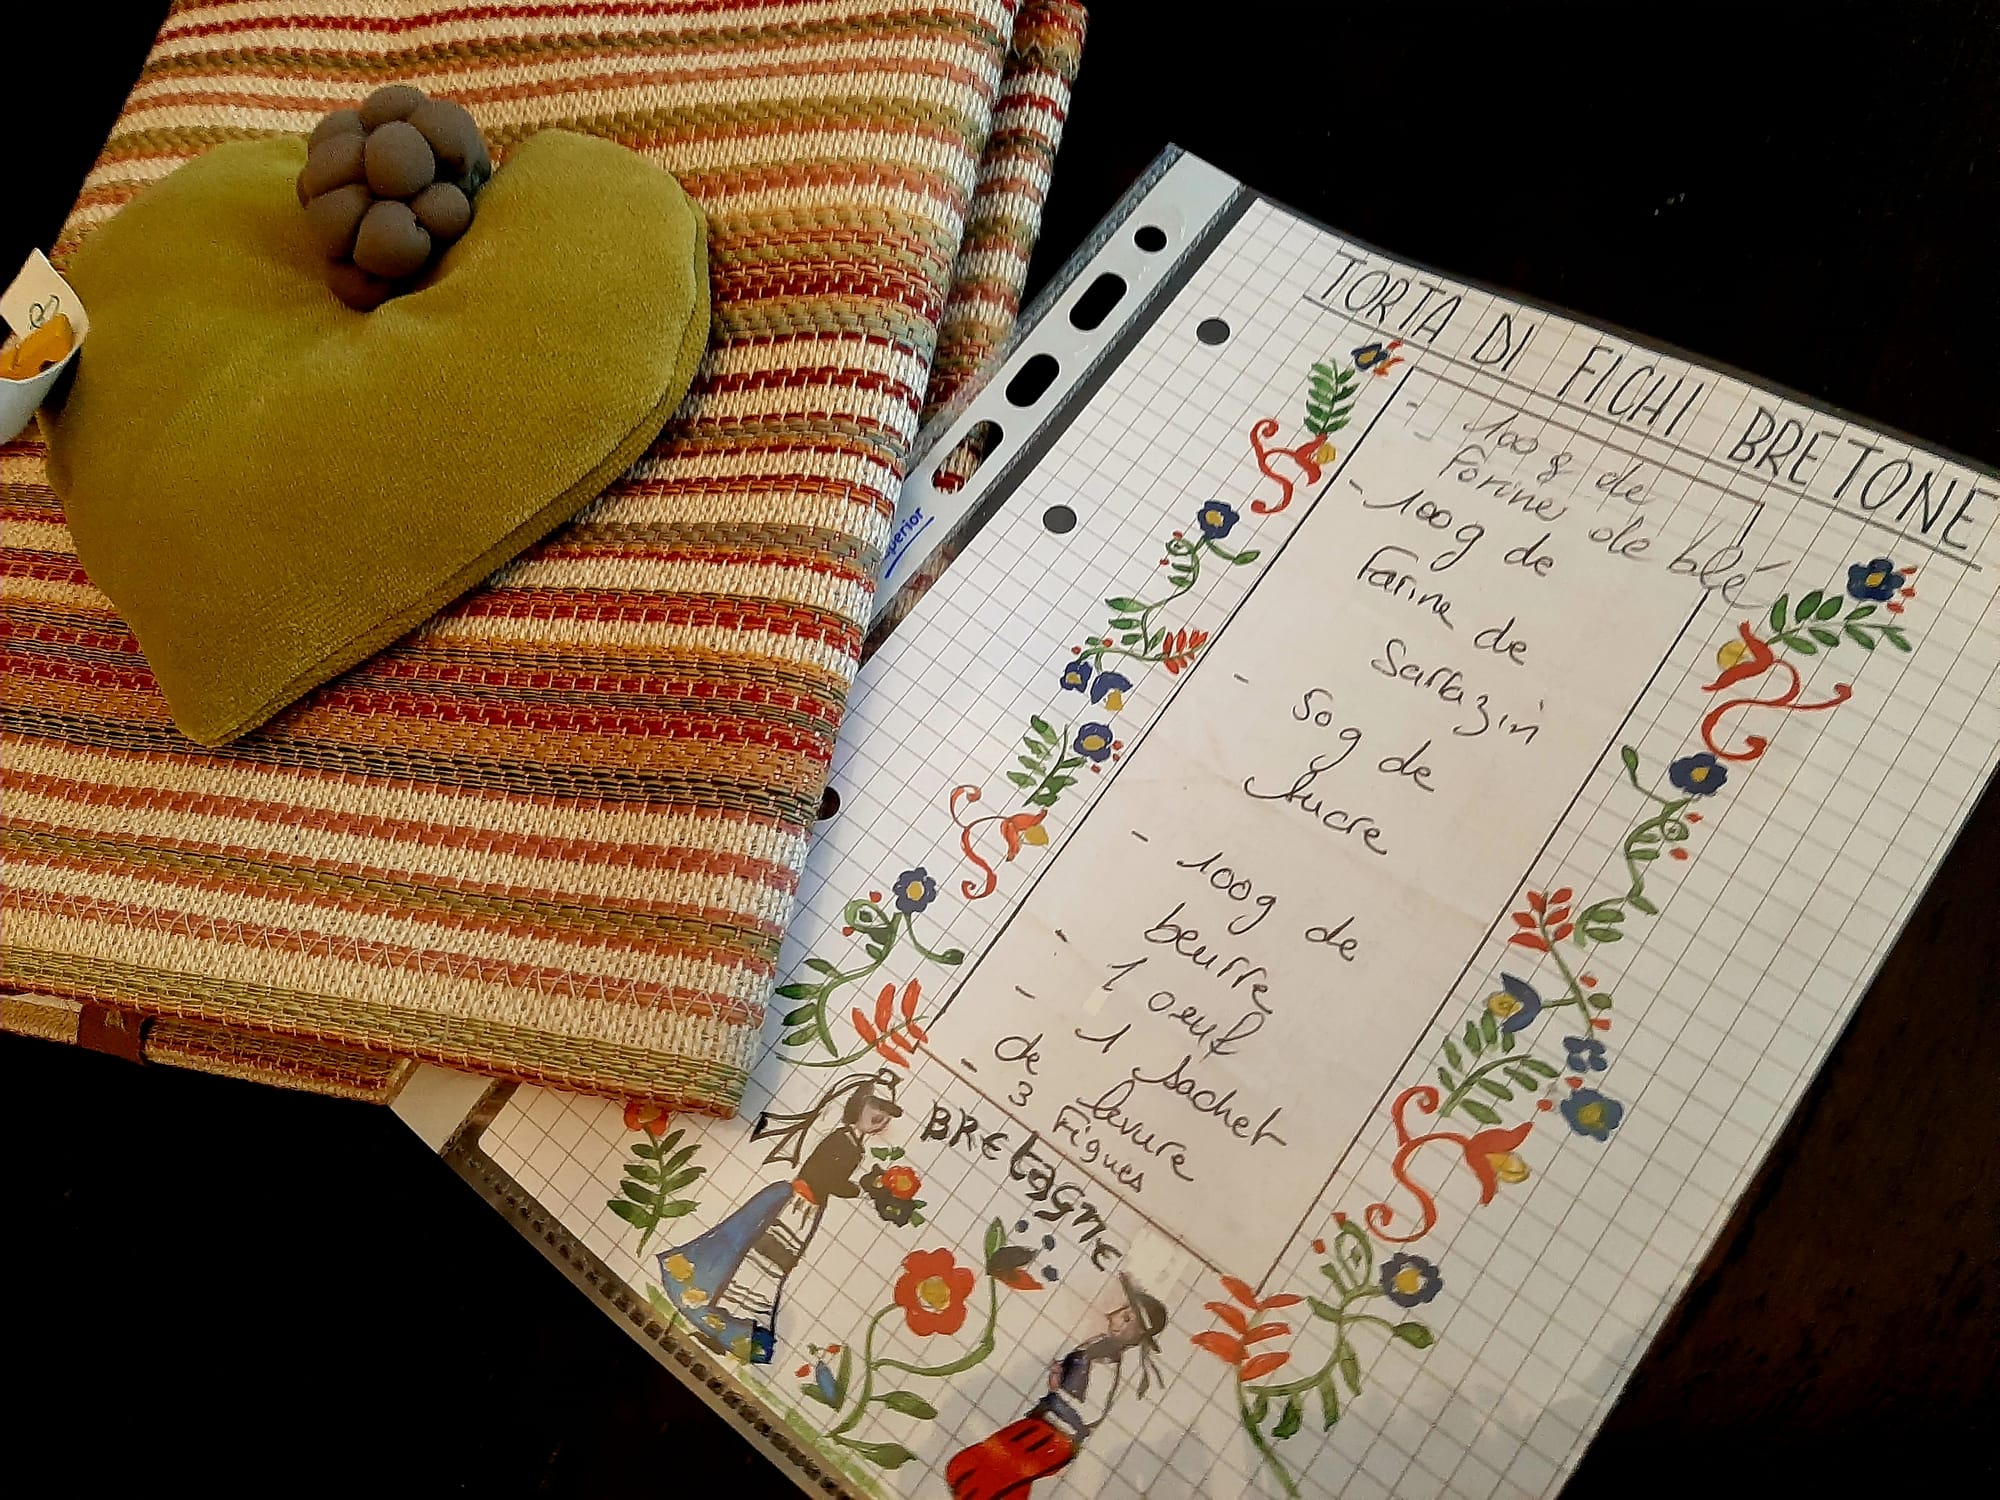 TORTA DI FICHI BRETONE
- 100 g de
- Farine de blé
- 100 g de
Farine de
Sarrazin
- 50 g de
sucre
- 100g de
beurre
- 1 oeuf
- 1 sachet
de levure
- 3 Figues
BREtaGNE
perior